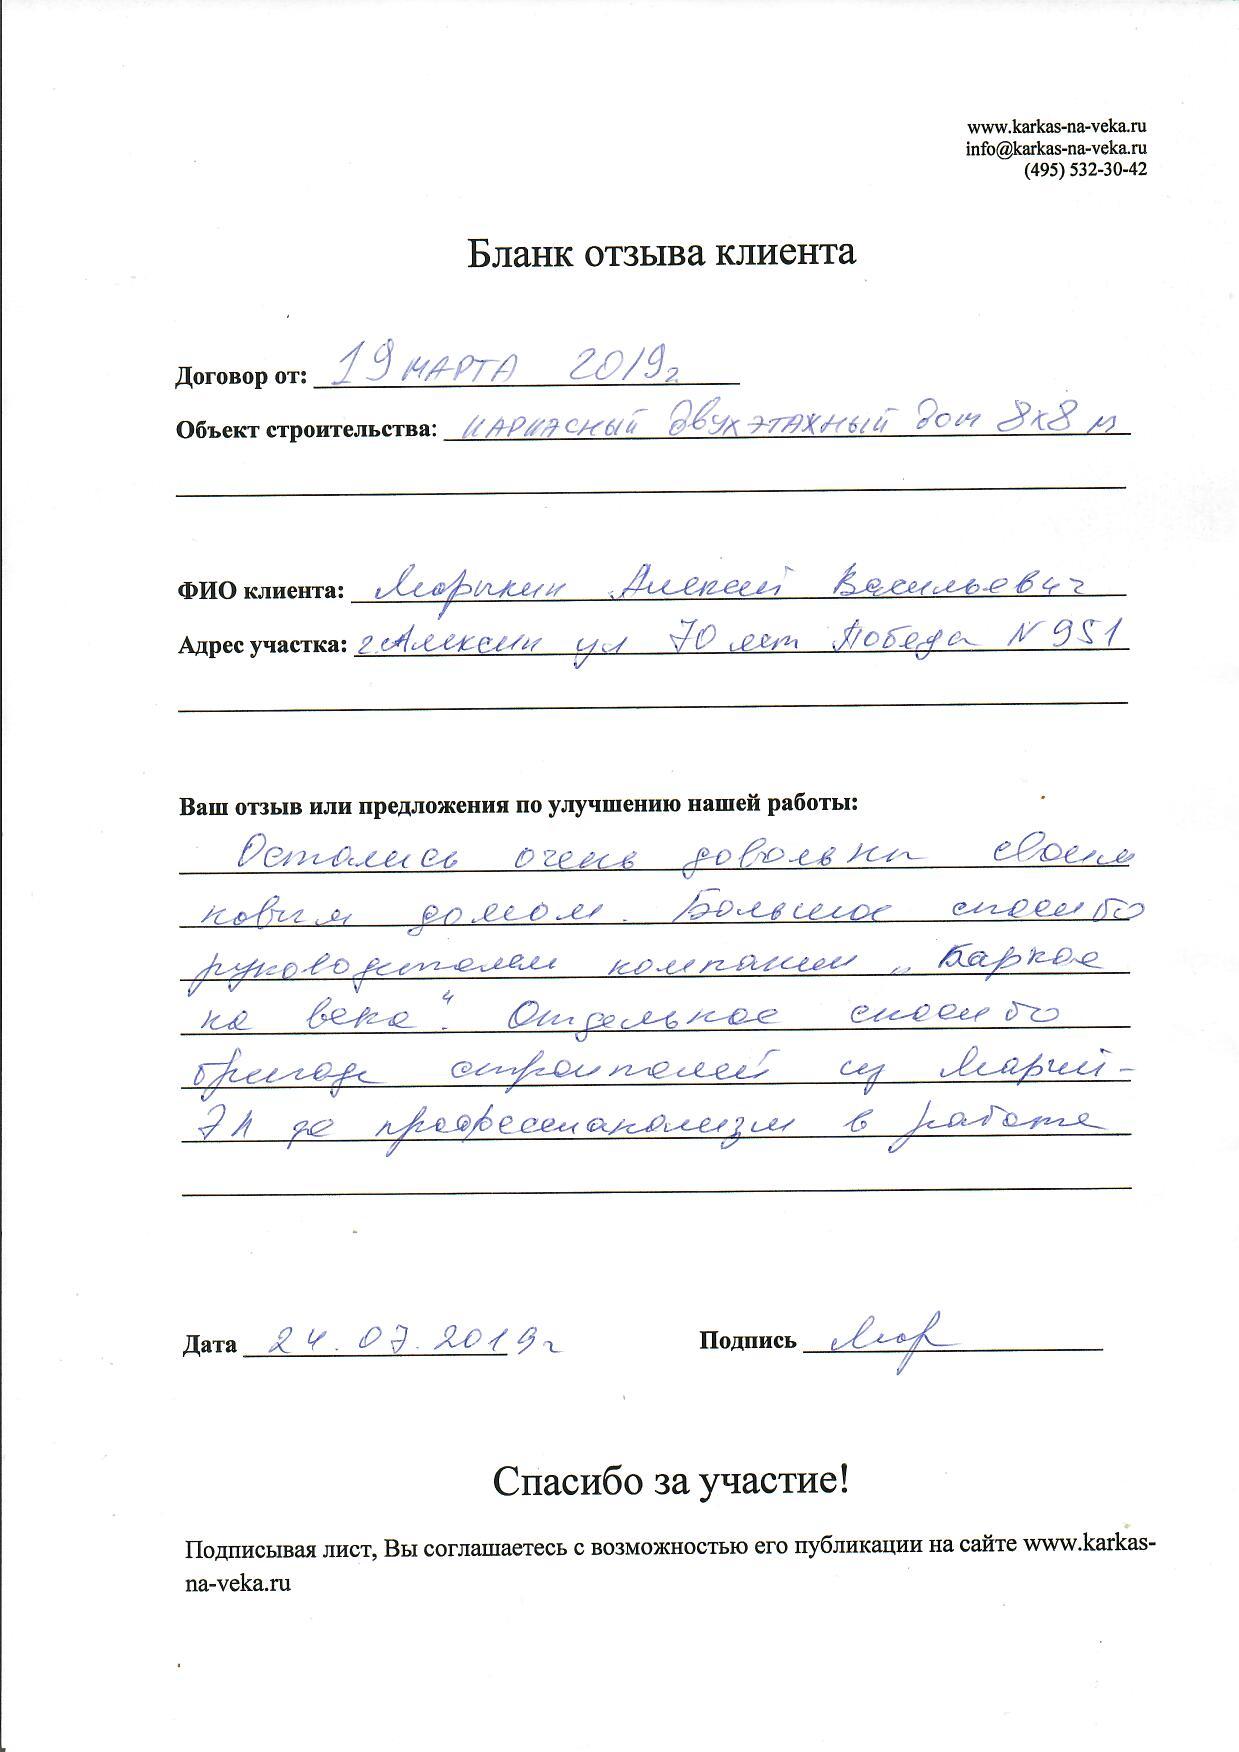 www.karkas-na-veka.ru
info@karkas-na-veka.ru
(495) 532-30-42
Бланк отзыва клиента
Договор от: 19 МАРТА 2019г
Объект строительства: КАРКАСНЫЙ ДВУХЭТАЖНЫЙ ДОМ 8х8 м
ФИО клиента: Морыкин Алексей Васильевич
Адрес участка: г.Алексин ул 70 лет Победа N 951
Ваш отзыв или предложения по улучшению нашей работы:
Остались очень довольны своим
новым домом. Большое спасибо
руководителям компании „Каркас
на века". Отдельное спасибо
бригаде строителей из Марий-
Эл за профессианализм в работе
Дата 24.07.2019г Подпись Мор
Спасибо за участие!
Подписывая лист, Вы соглашаетесь с возможностью его публикации на сайте www.karkas-
na-veka.ru